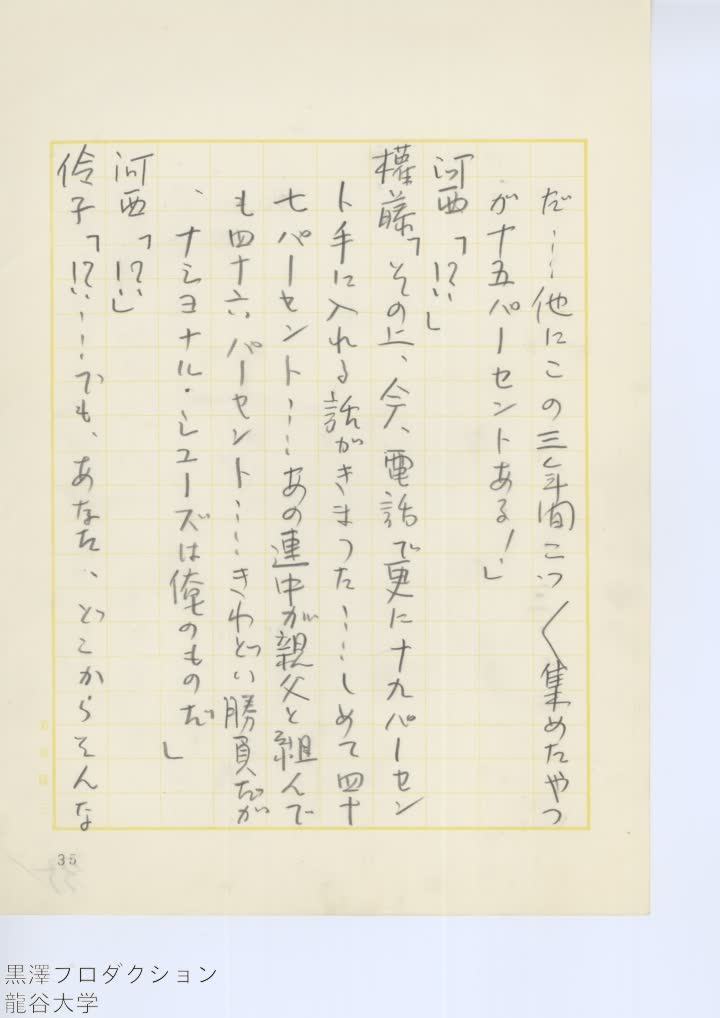 だ……他にこの三年間こつ〱集めたやつ
が十五パーセントある！」
河西「！？……」
権藤「その上、今、電話で更に十九パーセン
ト手に入れる話がきまつた……しめて四十
七パーセント……あの連中が親父と組んで
も四十六パーセント……きわどい勝負だが
、ナショナル・シューズは俺のものだ」
河西「！？……」
伶子「！？……でも、あなた、どこからそんな
35
黒澤プロダクション
龍谷大学